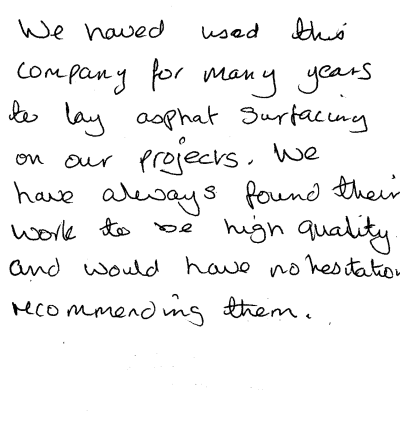 We haved used this
company for many years
to lay asphat surfacing
on our projects. We
have always found their
work to be high quality
and would have no hesitation
recommending them.